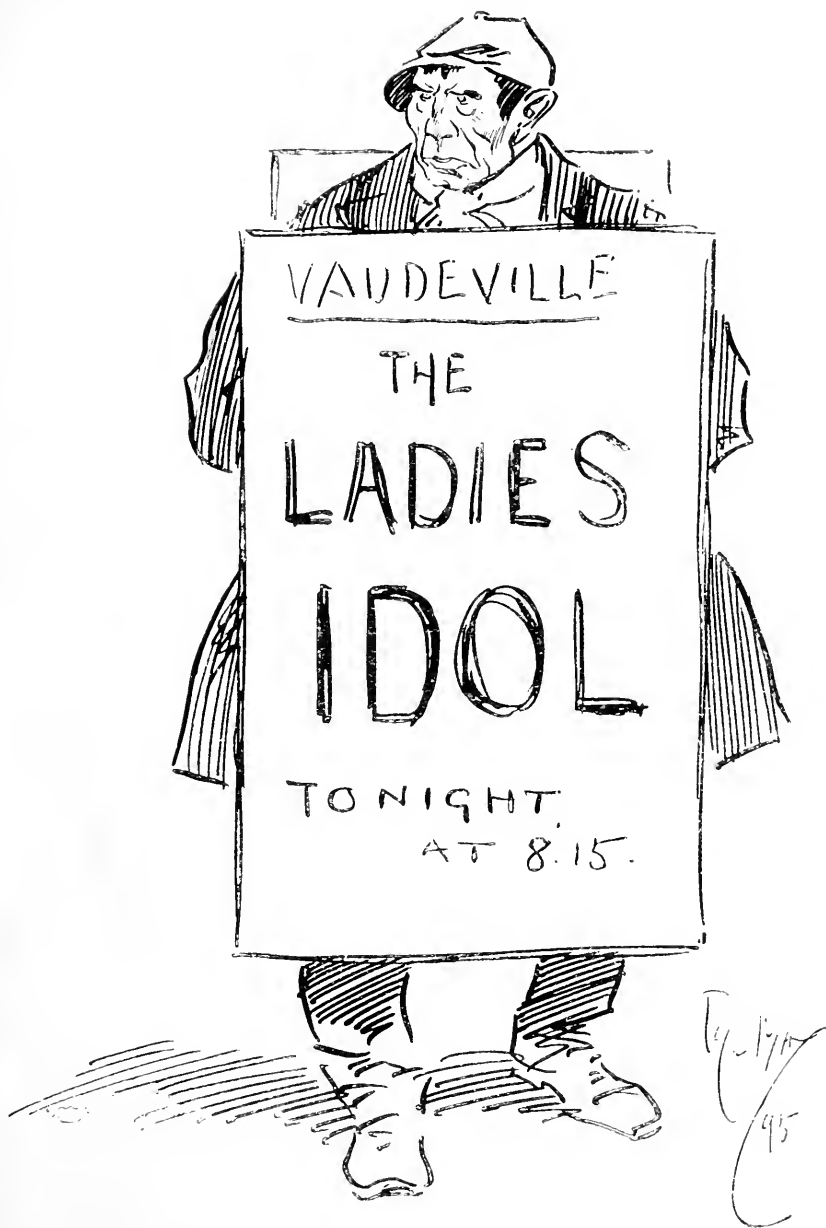 VAUDEVILLE
THE
LADIES
IDOL
TONIGHT.
AT 8.15.
95